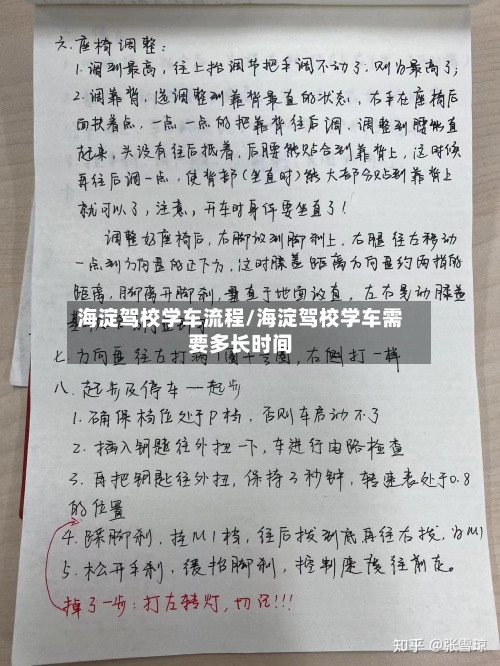 六.座椅调整:
1.调到最高,往上抬调节把手调不动了.则为最高了;
2.调靠背,选调整到靠背最直的状态,右手在座椅后
面扶着点,一点一点的把靠背往后调,调整到腰能直
起来,头没有往后抵着,后腰能贴合到靠背上,这时候
再往后调一点,使背部(坐直时)能大部分贴到靠背上
就可以了,注意,开车时身体要坐直了!
调整好座椅后,右脚放到脚刹上,右腿往左移动
一点到方向盘的正下方,这时膝盖距离方向盘约两拍的
距离,脚离开脚刹,垂直于地面放直,左右晃动膝盖
海淀驾校学车流程/海淀驾校学车需
要多长时间
七.方向盘往左打满1圈 圈,右侧打一样
八.起步及停车—起步
1.确保档位处于P档,否则车启动不了
2.插入钥匙往外扭一下,车进行电路检查
3.再把钥匙往外扭,保持3秒钟,转速表处于0.8
的位置
4.踩脚刹,挂M1档,往后拨到底再往右拨,为M1
5.松开手刹,缓抬脚刹,控制速度往前走。
掉了一步:打左转灯,切记!!!
知乎 @张雪琼